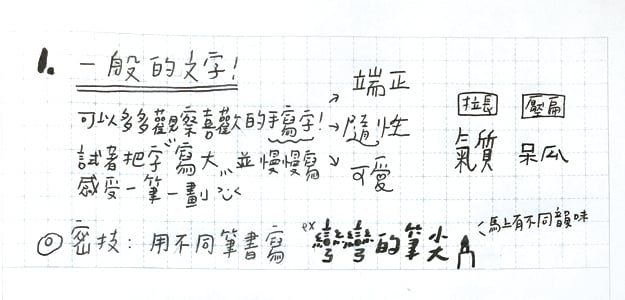 1. 一般的文字!
可以多多觀察喜歡的手寫字!
試著把字"寫大"並慢慢寫
感受一筆一劃
端正
隨性
可愛
拉長 壓扁
氣質 呆瓜
◎密技: 用不同筆書寫 ex 彎彎的筆尖
馬上有不同韻味